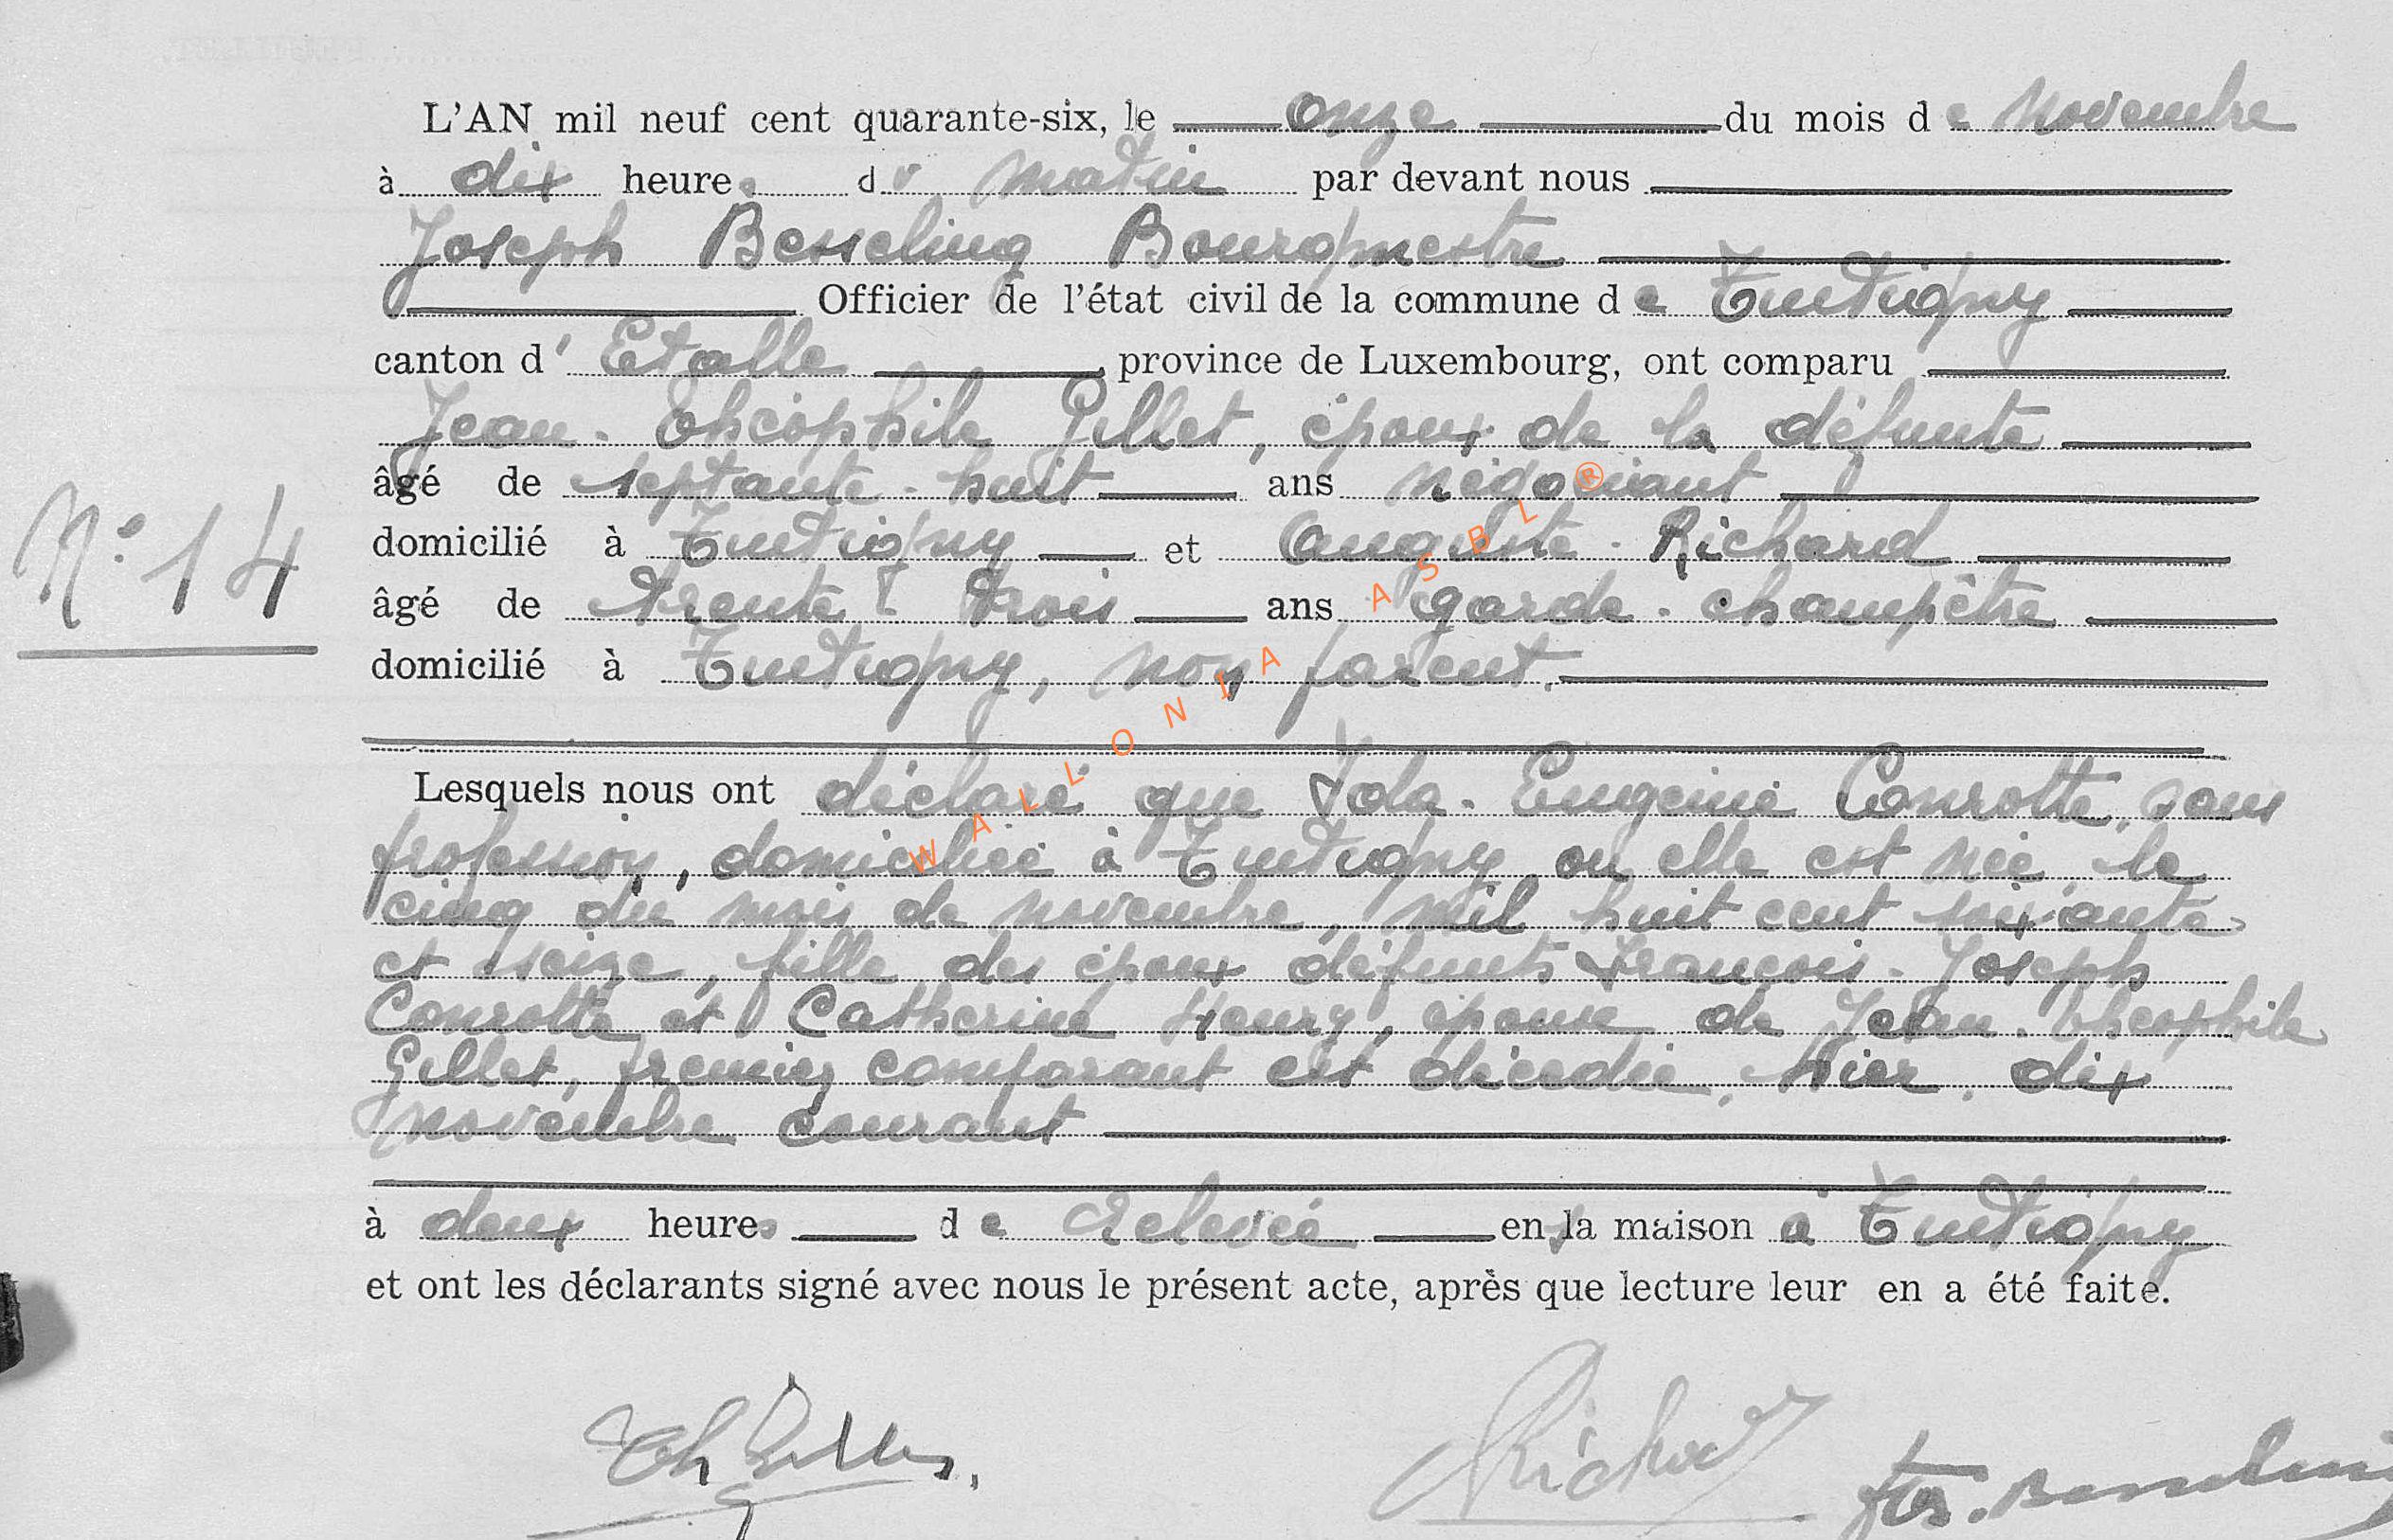 L'AN mil neuf cent quarante-six, le onze du mois de Novembre
à dix heures du matin par devant nous
Joseph Besseling Bourgmestre
Officier de l'état civil de la commune de Tintigny
canton d'Etalle province de Luxembourg, ont comparu
Jean-Théophile Gillet, époux de la défunte
âgé de septante-huit ans négociant
domicilié à Tintigny et Auguste-Richard
N° 14
âgé de trente-trois ans garde-champêtre
domicilié à Tintigny, non parent.
Lesquels nous ont déclaré que Ida-Eugénie Conrotte, sans
profession, domiciliée à Tintigny où elle est née, le
cinq du mois de novembre, mil huit cent soixante
et seize, fille des époux défunts François-Joseph
Conrotte et Catherine Henry, épouse de Jean-Théophile
Gillet, premier comparant est décédée, hier, dix
novembre courant
à deux heures de relevée en sa maison à Tintigny
et ont les déclarants signé avec nous le présent acte, après que lecture leur en a été faite.
Th Gillet. Richard Jos. Besseling
WALLONIA ASBL ®